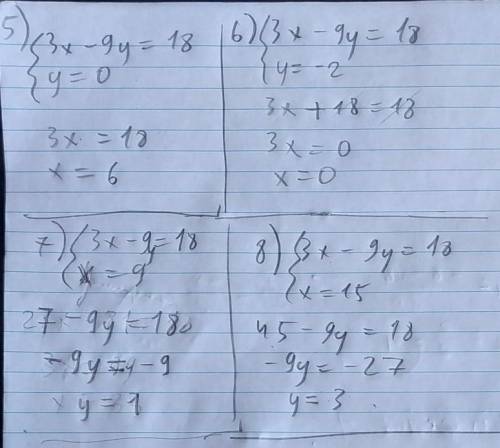 5) { 3x - 9y = 18
y = 0
3x = 18
x = 6
6) { 3x - 9y = 18
y = -2
3x + 18 = 18
3x = 0
x = 0
7) { 3x - 9y = 18
x = 9
27 - 9y = 18
-9y = -9
y = 1
8) { 3x - 9y = 18
x = 15
45 - 9y = 18
-9y = -27
y = 3